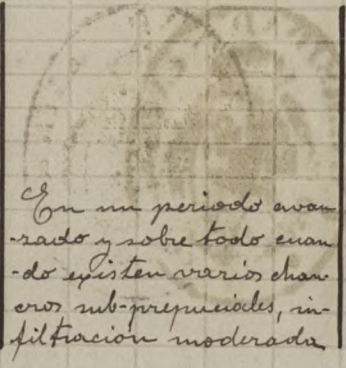 En un periodo avan-
-zado y sobre todo cuan
-do existen varios chan-
cros sub-prepuciales, in-
filtración moderada